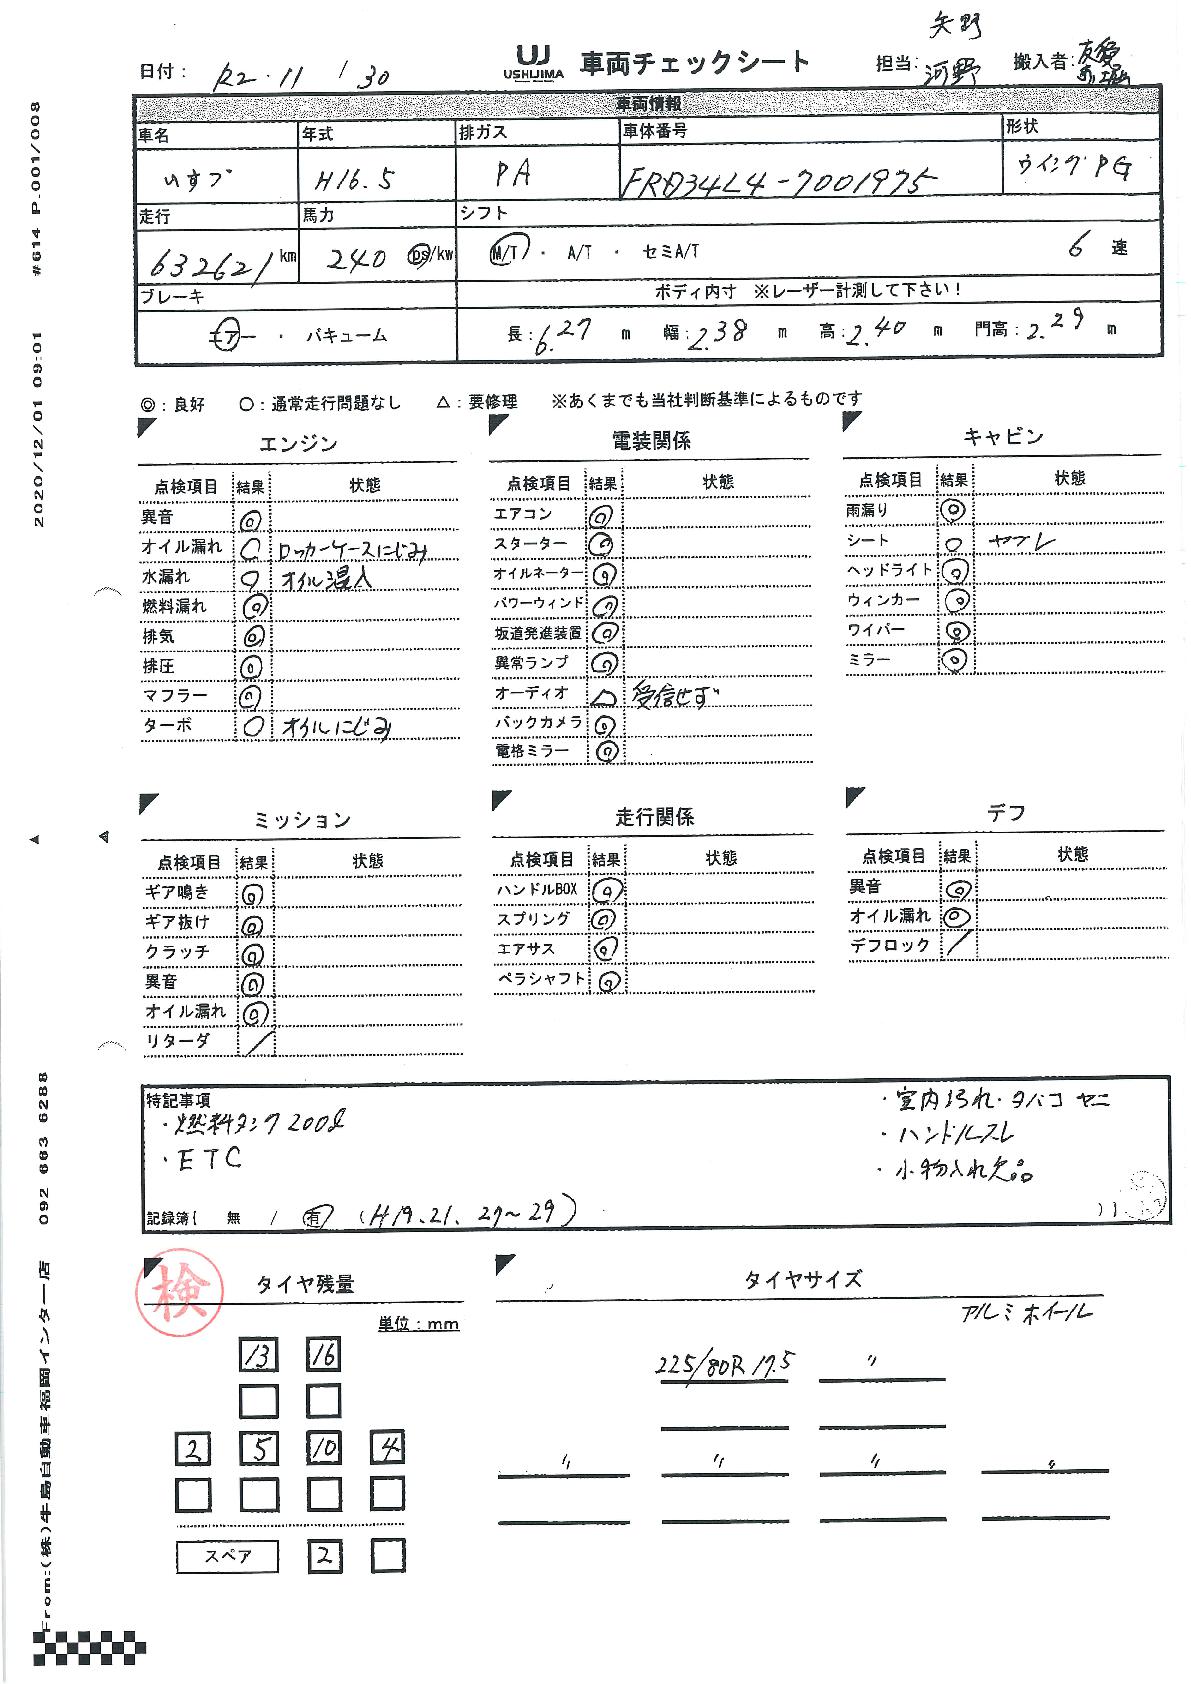 矢野
日付： R2・11 / 30
UJ USHIJIMA 車両チェックシート 担当：河野 搬入者：
車両情報
車名 年式 排ガス 車体番号 形状
いすゞ H16.5 PA FRD34L4-7001975 ウイングPG
走行 馬力 シフト
632621 km 240 ps/kw M/T ・ A/T ・ セミA/T 6 速
ブレーキ ボディ内寸 ※レーザー計測して下さい！
エアー ・ バキューム 長：6.27 m 幅：2.38 m 高：2.40 m 門高：2.29 m
◎：良好 ○：通常走行問題なし △：要修理 ※あくまでも当社判断基準によるものです
エンジン
点検項目 結果 状態
異音 ◎
オイル漏れ ○ ロッカーケースにじみ
水漏れ ○ オイル混入
燃料漏れ ◎
排気 ◎
排圧 ◎
マフラー ◎
ターボ ○ オイルにじみ
電装関係
点検項目 結果 状態
エアコン ◎
スターター ◎
オイルネーター ◎
パワーウィンド ◎
坂道発進装置 ◎
異常ランプ ◎
オーディオ △ 受信せず
バックカメラ ◎
電格ミラー ◎
キャビン
点検項目 結果 状態
雨漏り ◎
シート ○ ヤブレ
ヘッドライト ◎
ウィンカー ◎
ワイパー ◎
ミラー ◎
ミッション
点検項目 結果 状態
ギア鳴き ◎
ギア抜け ◎
クラッチ ◎
異音 ◎
オイル漏れ ◎
リターダ ／
走行関係
点検項目 結果 状態
ハンドルBOX ◎
スプリング ◎
エアサス ◎
ペラシャフト ◎
デフ
点検項目 結果 状態
異音 ◎
オイル漏れ ◎
デフロック ／
特記事項
・燃料タンク200ℓ
・ETC
・室内汚れ・タバコヤニ
・ハンドルスレ
・小物入れ欠品
記録簿（ 無 / 有 （H19.21.27～29）
検
タイヤ残量
単位：mm
13 16
2 5 10 4
スペア 2
タイヤサイズ
アルミホイール
225/80R 17.5 〃
〃 〃 〃 〃
2020/12/01 09:01 #614 P.001/008
From:(株)牛島自動車福岡インター店 092 663 6288